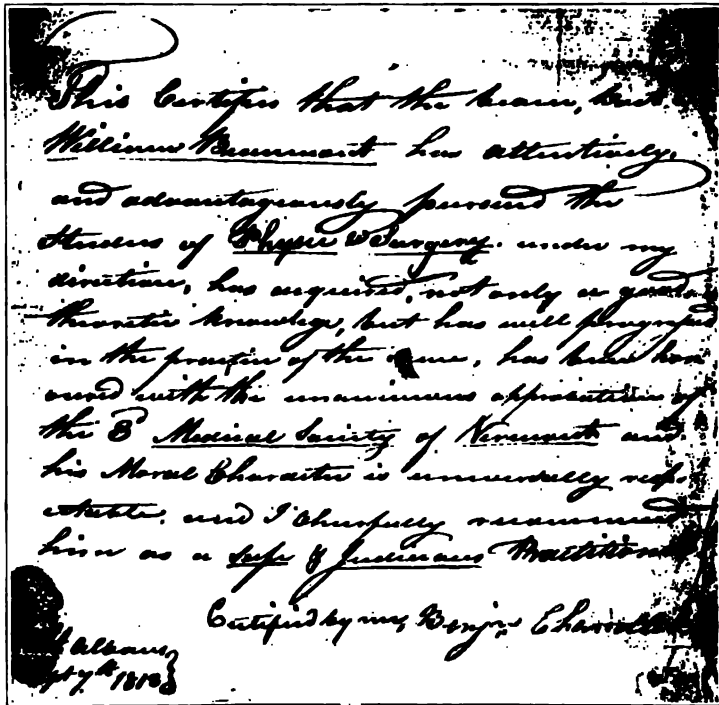 This Certifies that the bearer,
William Beaumont has attentively,
and advantageously pursued the
Studies of Physic & Surgery. under my
direction, has acquired, not only a good
theoretic knowledge, but has well progressed
in the practice of the same, has been hon
oured with the unanimous approbation of
the Medical Society of Vermont and
his Moral Character is universally resp-
ectable. and I cheerfully recommend
him as a safe & Judicious Practitioner
Certified by me, Benjn Chandler
St Albans
Sept 7th 1812